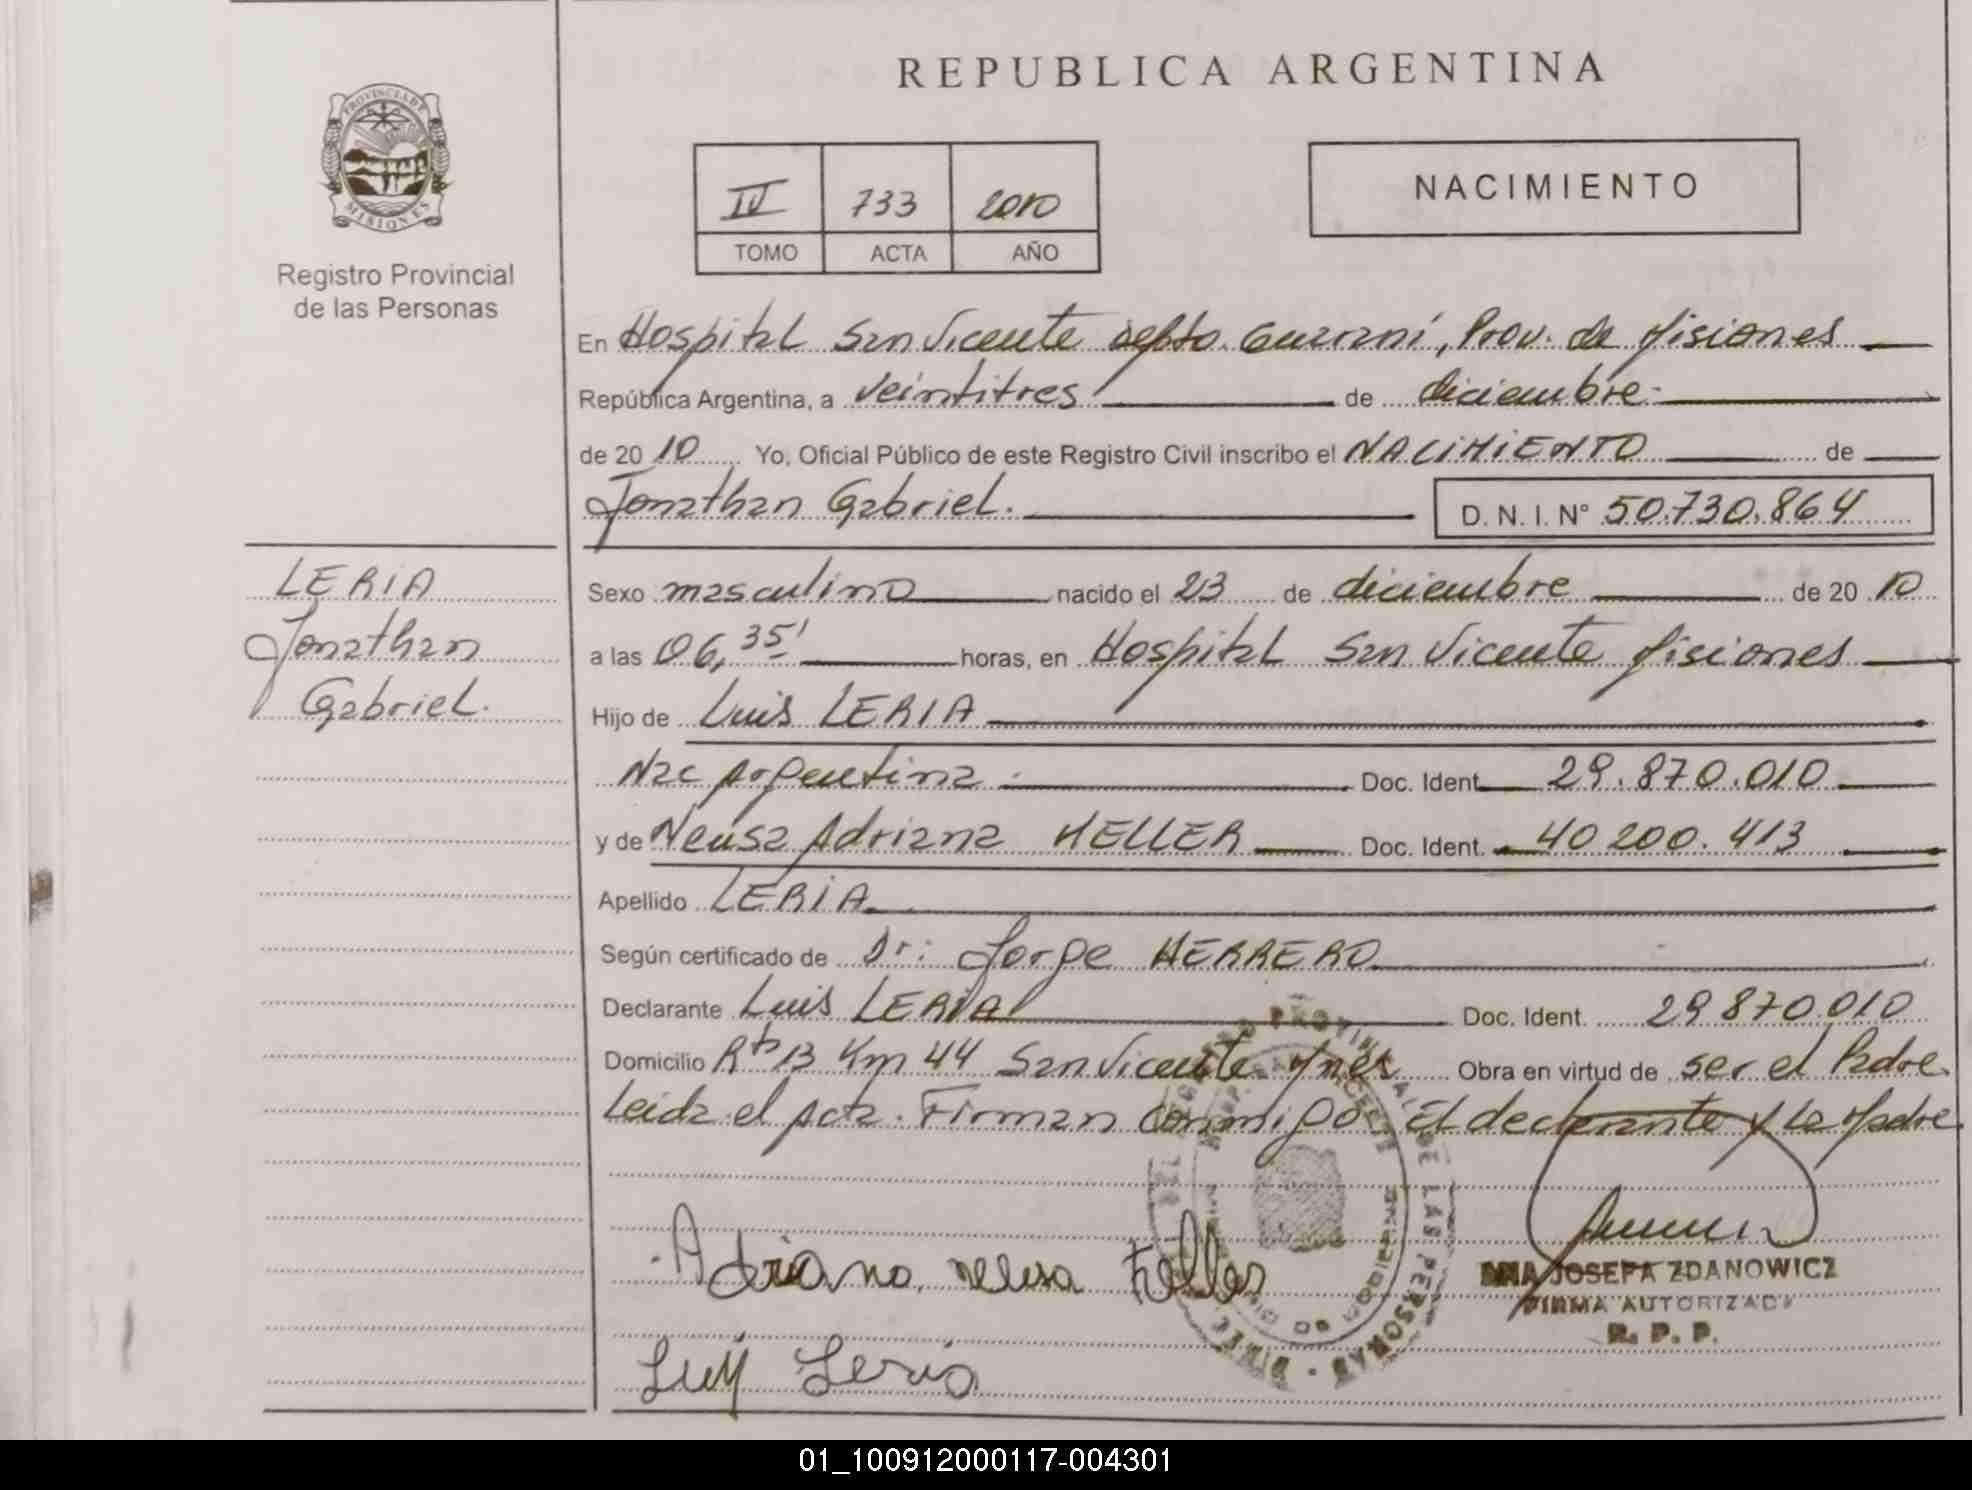 REPUBLICA ARGENTINA
PROVINCIA DE
MISIONES
Registro Provincial
de las Personas
IV 733 2010
TOMO ACTA AÑO
NACIMIENTO
En Hospital San Vicente depto. Guaraní, Prov. de Misiones
República Argentina, a veintitres de diciembre
de 20 10 Yo, Oficial Público de este Registro Civil inscribo el NACIMIENTO de
Jonathan Gabriel. D. N. I. N° 50.730.864
LERIA
Jonathan
Gabriel.
Sexo masculino nacido el 23 de diciembre de 20 10
a las 06,35' horas, en Hospital San Vicente Misiones
Hijo de Luis LERIA
Nac Argentina Doc. Ident. 29.870.010
y de Neusa Adriana HELLER Doc. Ident. 40 200.413
Apellido LERIA
Según certificado de Dr: Jorge HERRERO
Declarante Luis LERIA Doc. Ident. 29 870.010
Domicilio Rta 13 Km 44 San Vicente Mnes Obra en virtud de ser el Padre
Leida el Acta. Firman conmigo El declarante y la Madre
Adriana neusa
Luis Leria
ANA JOSEFA ZDANOWICZ
FIRMA AUTORIZADA
R. P. P.
PROVINCIAL DE LAS PERSONAS
01_100912000117-004301